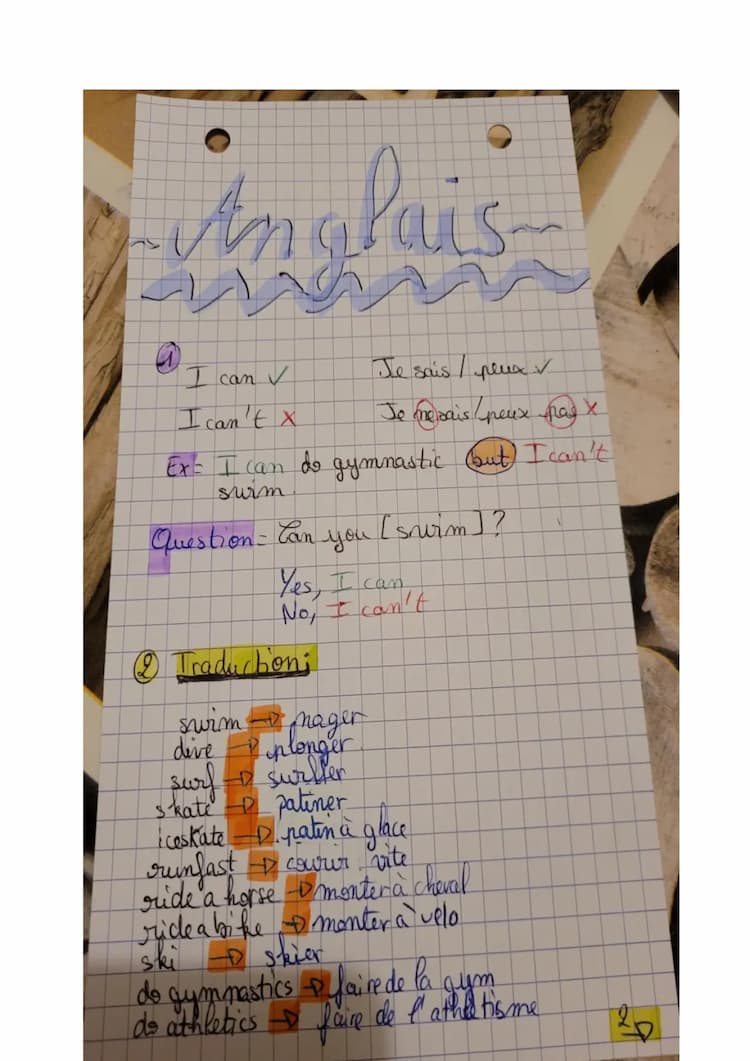 ~Anglais~
1
I can ✓ Je sais / peux ✓
I can't X Je ne sais/peux pas X
Ex= I can do gymnastic but I can't
swim.
Question= Can you [swim]?
Yes, I can
No, I can't
2 Traduction:
swim → nager
dive → plonger
surf → surffer
skate → patiner
iceskate → patin à glace
runfast → courir vite
ride a horse → monter à cheval
ride a bike → monter à vélo
ski → skier
do gymnastics → faire de la gym
do athletics → faire de l'athétisme
2 →